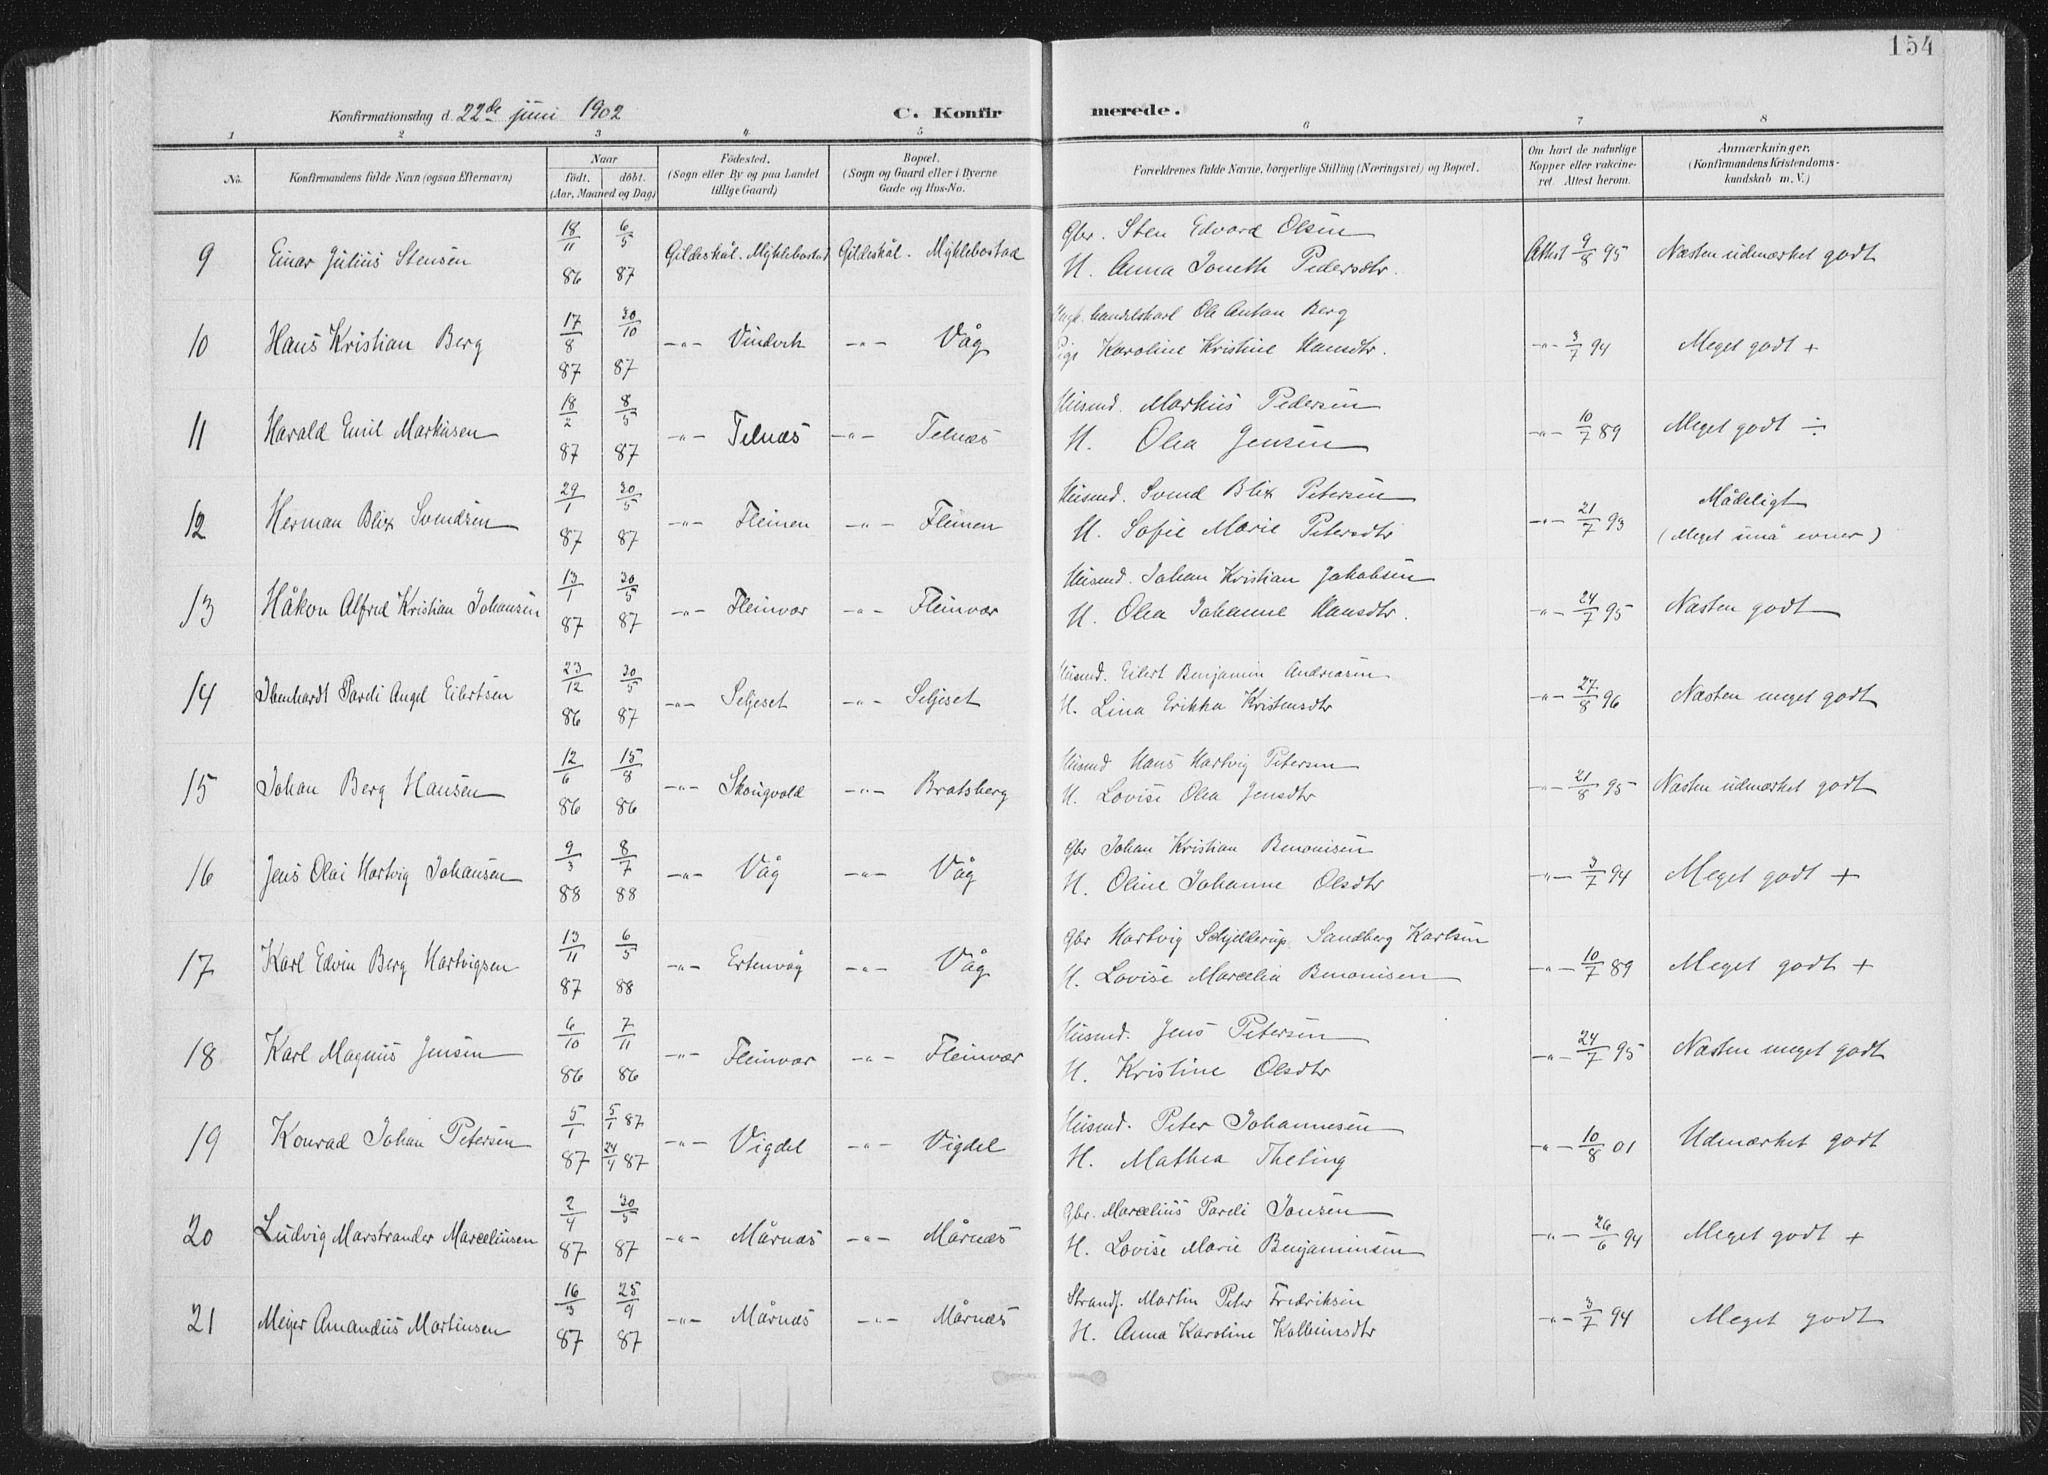 154
Konfirmationsdag d. 22de juni 1902
C. Konfirmerede.
1 2 3 4 5 6 7 8
No.
Konfirmandens fulde Navn (ogsaa Efternavn)
Naar
født. døbt.
(Aar, Maaned og Dag)
Fødested.
(Sogn eller By og paa Landet
tillige Gaard)
Bopæl.
(Sogn og Gaard eller i Byerne
Gade og Hus-No.
Forældrenes fulde Navne, borgerlige Stilling (Næringsvei) og Bopæl.
Om havt de naturlige
Kopper eller vakcine-
ret. Attest herom.
Anmærkninger.
(Konfirmandens Kristendoms-
kundskab m. V.)
9 Einar Julius Stensen 18/11 86 6/5 87 Gildeskål. Myklebostad Gildeskål. Myklebostad
Gbr. Sten Edvard Olsen
H. Anna Joneth Pedersdtr.
Attest 9/8 95 Næsten udmærket godt
10 Hans Kristian Berg 17/8 87 30/10 87 -"- Vindvik -"- Våg
Ungk. handelskarl Ole Anton Berg
Pige Karoline Kristine Hansdtr.
-"- 3/7 94 Meget godt +
11 Harald Emil Markusen 18/2 87 8/5 87 -"- Telnæs -"- Telnæs
Husmd. Markus Pedersen
H. Olea Jensen
-"- 10/7 89 Meget godt ÷
12 Herman Blix Svendsen 29/1 87 30/5 87 -"- Fleinen -"- Fleinen
Husmd. Svend Blix Petersen
H. Sofie Marie Petersdtr
-"- 21/7 93 Mådeligt
(Meget små evner)
13 Håkon Alfred Kristian Johansen 13/1 87 30/5 87 -"- Fleinvær -"- Fleinvær
Husmd. Johan Kristian Jakobsen
H. Olea Johanne Hansdtr.
-"- 24/7 95 Næsten godt
14 Ibenhardt Pareli Angel Eilertsen 23/12 86 30/5 87 -"- Seljeset -"- Seljeset
Husmd. Eilert Benjamin Andreasen
H. Lina Erikka Kristensdtr
-"- 27/8 96 Næsten meget godt
15 Johan Berg Hansen 12/6 86 15/8 86 -"- Skongvold -"- Bratsberg
Husmd Hans Hartvig Petersen
H. Lovise Olea Jensdtr
-"- 21/8 95 Næsten udmærket godt
16 Jens Olai Hartvig Johansen 9/3 88 8/7 88 -"- Våg -"- Våg
Gbr Johan Kristian Benonisen
H. Oline Johanne Olsdtr
-"- 3/7 94 Meget godt +
17 Karl Edvin Berg Hartvigsen 13/11 87 6/5 88 -"- Ertenvåg -"- Våg
Gbr Hartvig Schjelderup Sandberg Karlsen
H. Lovise Marcelia Benonisen
-"- 10/7 89 Meget godt +
18 Karl Magnus Jensen 6/10 86 7/11 86 -"- Fleinvær -"- Fleinvær
Husmd. Jens Petersen
H. Kristine Olsdtr
-"- 24/7 95 Næsten meget godt
19 Konrad Johan Petersen 5/1 87 5/1 87 24/4 87 -"- Vigdel -"- Vigdel
Husmd. Peter Johannesen
H. Mathea Theting
-"- 10/8 01 Udmærket godt
20 Ludvig Marstrander Marceliusen 2/4 87 30/5 87 -"- Mårnæs -"- Mårnæs
Gbr. Marcelius Pareli Jonsen
H. Lovise Marie Benjaminsen
-"- 26/6 94 Meget godt +
21 Meyer Amandus Martinsen 16/3 87 25/9 87 -"- Mårnæs -"- Mårnæs
Strandf. Martin Peter Fredriksen
H. Anna Karoline Kolbeinsdtr
-"- 3/7 94 Meget godt